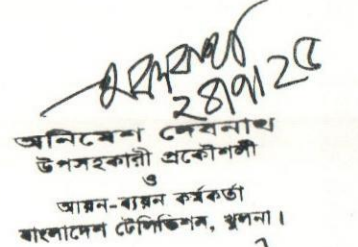 ২৪/৭/২৫
অনিমেশ দেবনাথ
উপসহকারী প্রকৌশলী
ও
আয়ন-ব্যয়ন কর্মকর্তা
বাংলাদেশ টেলিভিশন, খুলনা।